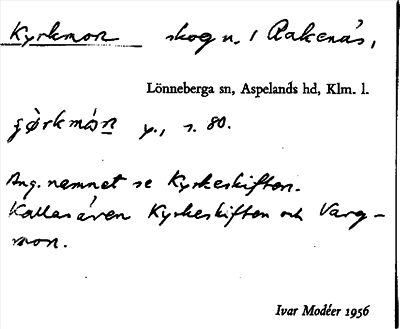 Kyrkmon skog n. i Aakenäs,
Lönneberga sn, Aspelands hd, Klm. l.
y., s. 80.
Ang. namnet se Kyrkeskiften.
Kallas även Kyrkeskiften och Varg-
mon.
Ivar Modéer 1956